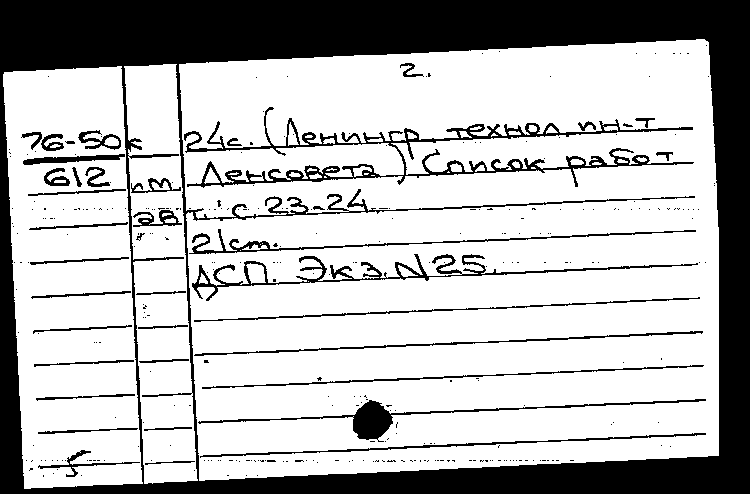 2.
76-50к 24с. (Ленингр. технол. ин-т
612 пт Ленсовета) Список работ
авт.: с. 23-24.
21 см.
ДСП. Экз. N 25.
5